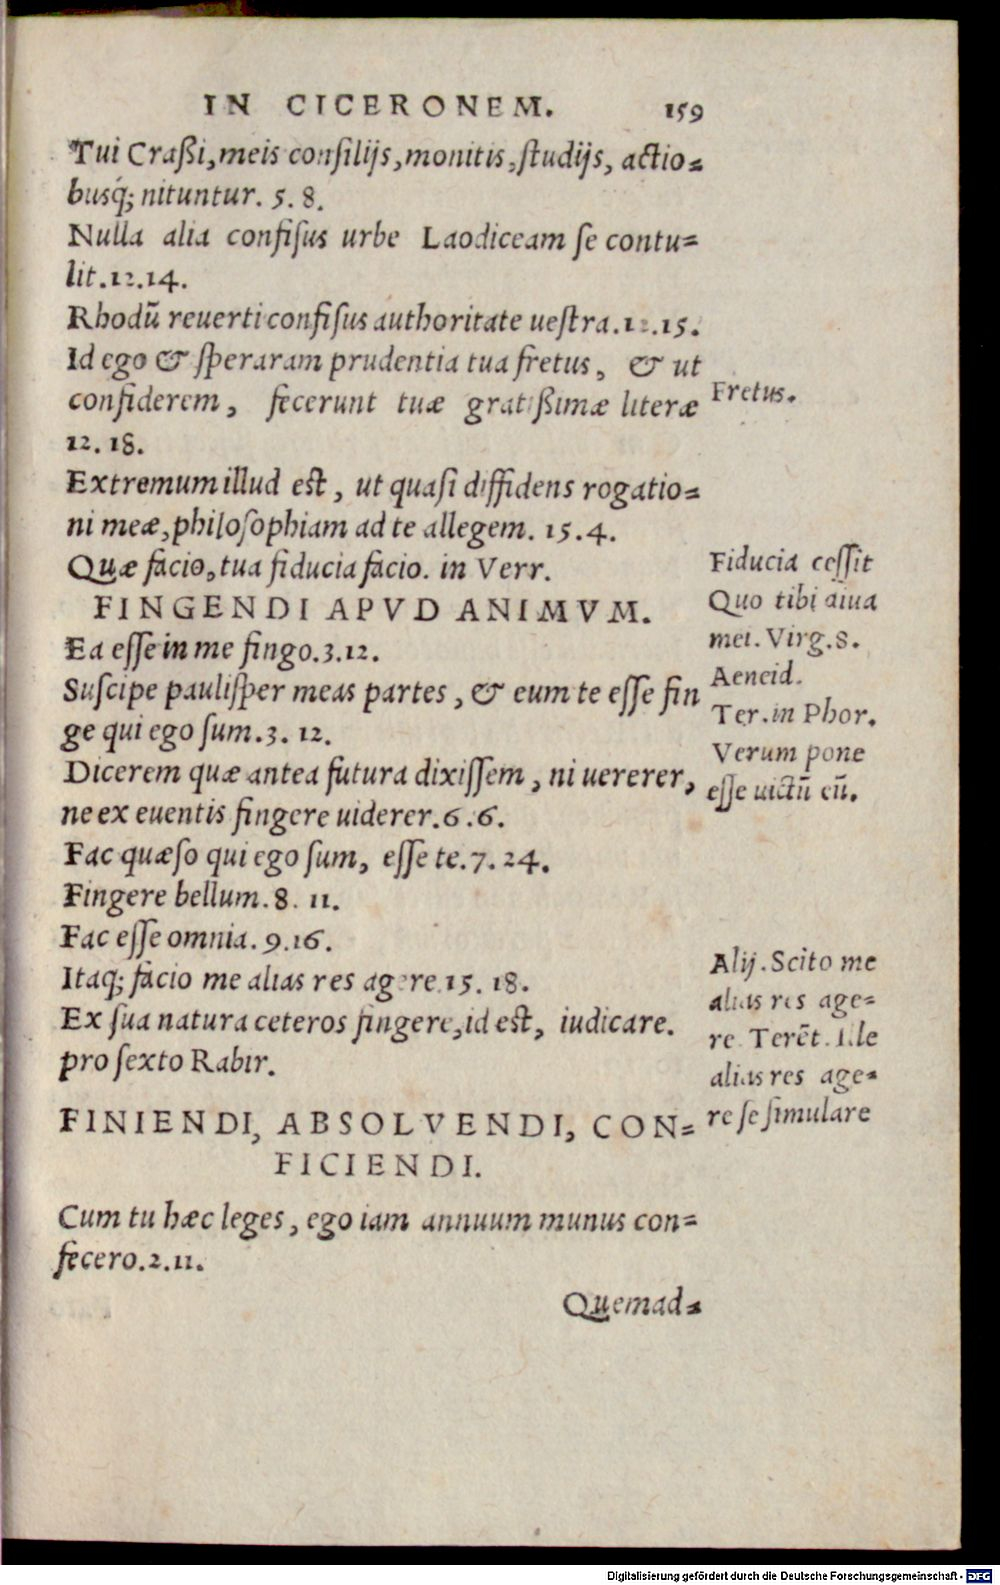 IN CICERONEM. 159
Tui Craßi, meis consilijs, monitis, studijs, actio=
busq́; nituntur. 5. 8.
Nulla alia confisus urbe Laodiceam se contu=
lit. 12. 14.
Rhodū reuerti confisus authoritate uestra. 12. 15.
Id ego & speraram prudentia tua fretus, & ut
confiderem, fecerunt tuæ gratißimæ literæ
12. 18.
Extremum illud est, ut quasi diffidens rogatio=
ni meæ, philosophiam ad te allegem. 15. 4.
Quæ facio, tua fiducia facio. in Verr.
FINGENDI APVD ANIMVM.
Ea esse in me fingo. 3. 12.
Suscipe paulisper meas partes, & eum te esse fin
ge qui ego sum. 3. 12.
Dicerem quæ antea futura dixissem, ni uererer,
ne ex euentis fingere uiderer. 6. 6.
Fac quæso qui ego sum, esse te. 7. 24.
Fingere bellum. 8. 11.
Fac esse omnia. 9. 16.
Itaq; facio me alias res agere. 15. 18.
Ex sua natura ceteros fingere, id est, iudicare.
pro sexto Rabir.
FINIENDI, ABSOLVENDI, CON=
FICIENDI.
Cum tu hæc leges, ego iam annuum munus con=
fecero. 2. 11.
Quemad=
Fretus.
Fiducia cessit
Quo tibi diua
mei. Virg. 8.
Aeneid.
Ter. in Phor.
Verum pone
esse uictū eū.
Alij. Scito me
alias res age=
re. Terēt. Ille
alias res age=
re se simulare
Digitalisierung gefördert durch die Deutsche Forschungsgemeinschaft - DFG